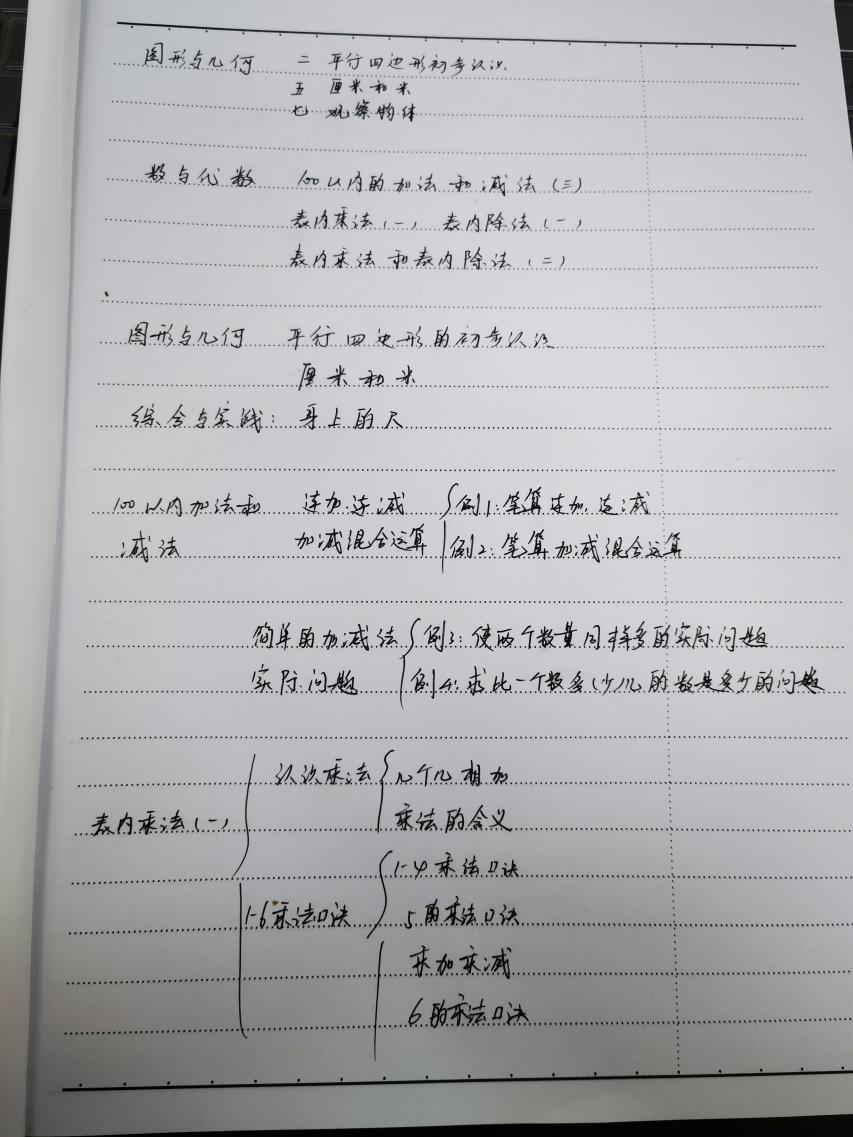 图形与几何 二 平行四边形初步认识
五 厘米和米
七 观察物体
数与代数 100以内的加法和减法(三)
表内乘法(一) 表内除法(一)
表内乘法和表内除法(二)
图形与几何 平行四边形的初步认识
厘米和米
综合与实践: 身上的尺
100以内加法和 连加.连减 {例1:笔算连加.连减
减法 加减混合运算 例2:笔算加减混合运算
简单的加减法 {例3:使两个数量同样多的实际问题
实际问题 例4:求比一个数多(少)几的数是多少的问题
认识乘法 {几个几相加
表内乘法(一) { 乘法的含义
1-4乘法口诀
1-6乘法口诀 { 5的乘法口诀
乘加乘减
6的乘法口诀